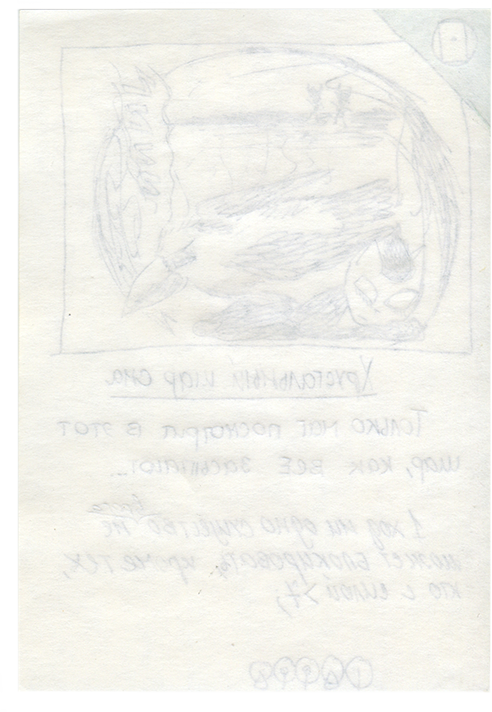 Хрустальный шар сна
Только маг посмотрел в этот
шар, как все засыпают...
врага
1 ход ни одно существо не
может блокировать, кроме тех,
кто с силой >7,